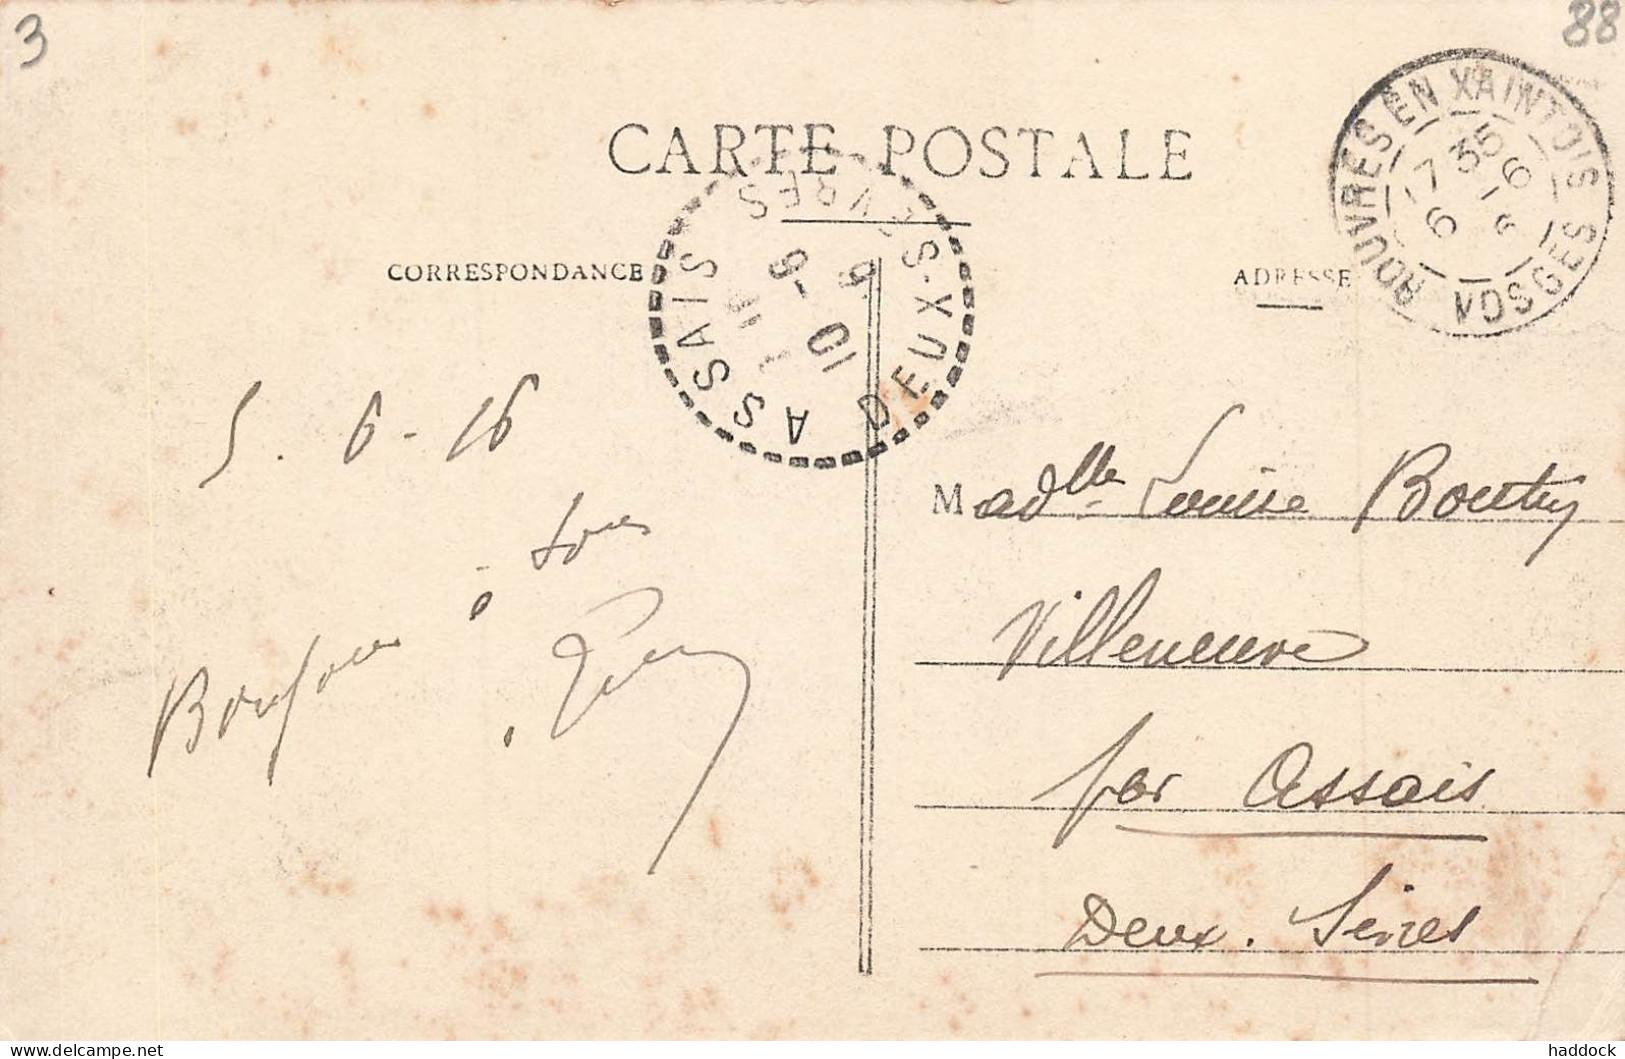 3
88
CARTE POSTALE
ROUVRES EN XAINTOIS
17 35
6 - 6
VOSGES
CORRESPONDANCE
ADRESSE
ASSAIS DEUX-SEVRES
10 - 6
5 . 6 - 16
Bonjour à tous
Madlle Louise Boutry
Villeneuve
par Assais
Deux. Sèvres
www.delcampe.net
haddock